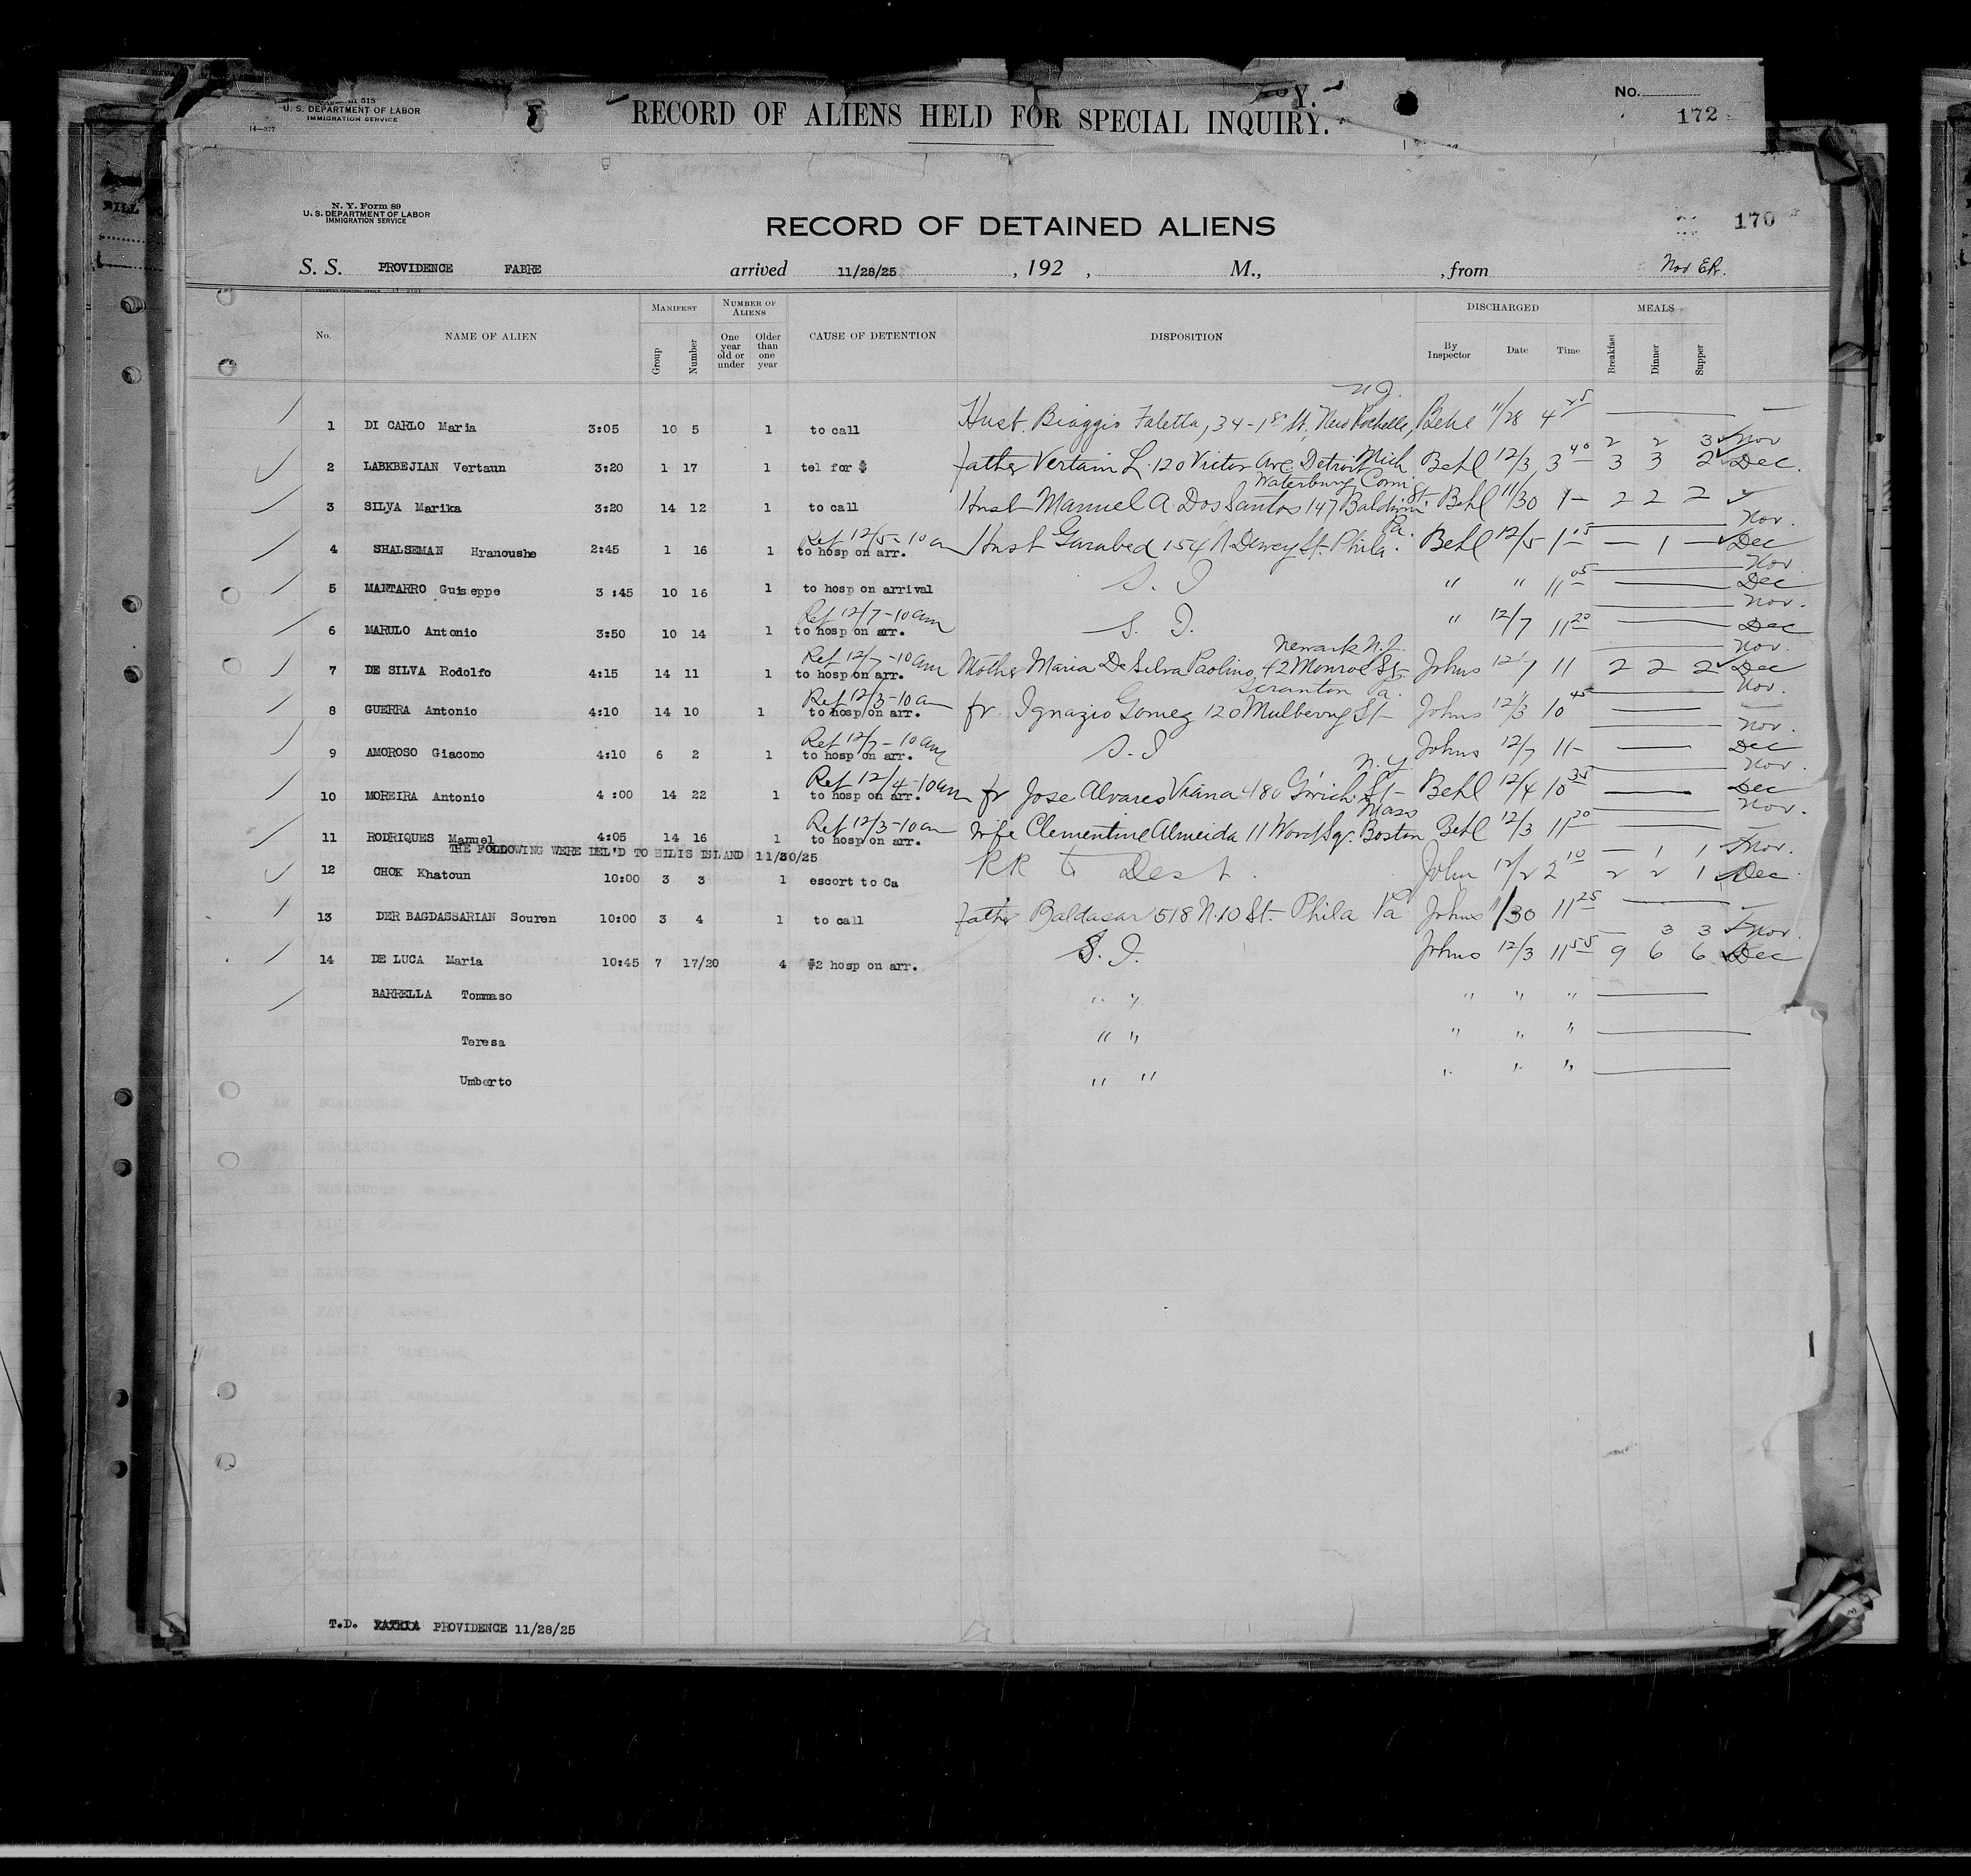 U. S. DEPARTMENT OF LABOR
IMMIGRATION SERVICE
14—377
RECORD OF ALIENS HELD FOR SPECIAL INQUIRY.
No.
172
N. Y. Form 89
U. S. DEPARTMENT OF LABOR
IMMIGRATION SERVICE
RECORD OF DETAINED ALIENS
170
S. S. PROVIDENCE FABRE arrived 11/28/25, 192 , M., , from Nov ER.
No. NAME OF ALIEN MANIFEST Group Number NUMBER OF ALIENS One year old or under Older than one year CAUSE OF DETENTION DISPOSITION DISCHARGED By Inspector Date Time MEALS Breakfast Dinner Supper
N.J.
1 DI CARLO Maria 3:05 10 5 1 to call Husb. Biaggio Faletta, 34-1st St, New Rochelle, Behl 11/28 4 25 —
2 2 3 Nov
2 LABKBEJIAN Vertaun 3:20 1 17 1 tel for $ father Vertain L. 120 Victor Ave. Detroit Mich Behl 12/3 3 40 3 3 2 Dec.
Waterbury Conn.
3 SILVA Marika 3:20 14 12 1 to call Husb Manuel A. Dos Santos 147 Baldwin St. Behl 11/30 1- 2 2 2
Ref 12/5-10 am Pa. Nov.
4 SHALSEMAN Hranoushe 2:45 1 16 1 to hosp on arr. Husb Garabed 154 N Dewey St. Phila. Behl 12/5 1 15 — 1 — Dec
Nov
5 MANTARRO Guiseppe 3 :45 10 16 1 to hosp on arrival S. I " " 11 05 — Dec
Ref 12/7-10 am Nov.
6 MARULO Antonio 3:50 10 14 1 to hosp on arr. S. I. " 12/7 11 20 — Dec
Ref 12/7-10 am Newark N.J. Nov.
7 DE SILVA Rodolfo 4:15 14 11 1 to hosp on arr. Mother Maria De Silva Paolino, 42 Monroe St- Johns 12/7 11 2 2 2 Dec
Ref 12/3-10 am Scranton Pa. Nov.
8 GUERRA Antonio 4:10 14 10 1 to hosp on arr. fr Ignazio Gomez 120 Mulberry St- Johns 12/3 10 45 —
Ref 12/7-10 am Nov.
9 AMOROSO Giacomo 4:10 6 2 1 to hosp on arr. S. I Johns 12/7 11- — Dec
Ref 12/4-10 am N.Y. Nov.
10 MOREIRA Antonio 4 :00 14 22 1 to hosp on arr. fr Jose Alvares Viana 480 G'wich. St- Behl 12/4 10 35 — Dec
Ref 12/3-10 am Mass Nov.
11 RODRIQUES Manuel 4:05 14 16 1 to hosp on arr. wife Clementine Almeida 11 Wood Sq. Boston Behl 12/3 11 20 —
THE FOLLOWING WERE DEL'D TO ELLIS ISLAND 11/30/25 — 1 1 Nov.
12 CHOK Khatoun 10:00 3 3 1 escort to Ca RR to Dest. John 12/2 2 10 2 2 1 Dec
13 DER BAGDASSARIAN Souren 10:00 3 4 1 to call father Baldasar 518 N. 10 St- Phila Pa Johns 11/30 11 25 —
— 3 3 Nov.
14 DE LUCA Maria 10:45 7 17/20 4 #2 hosp on arr. S. I. Johns 12/3 11 55 9 6 6 Dec
BARRELLA Tommaso " " " " "
Teresa " " " " "
Umberto " " " " "
T.D. PATRIA PROVIDENCE 11/28/25